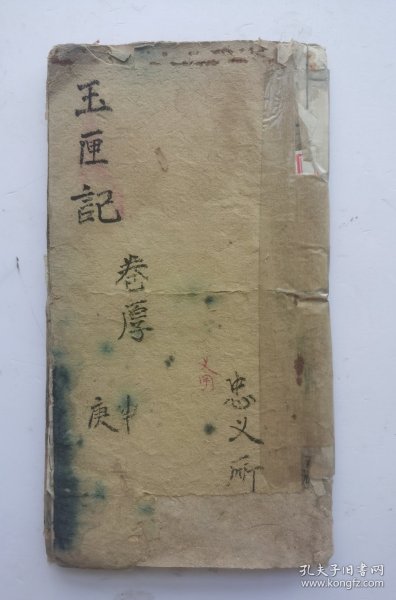 玉匣記
卷厚
庚申
忠义
孔夫子旧书网
www.kongfz.com